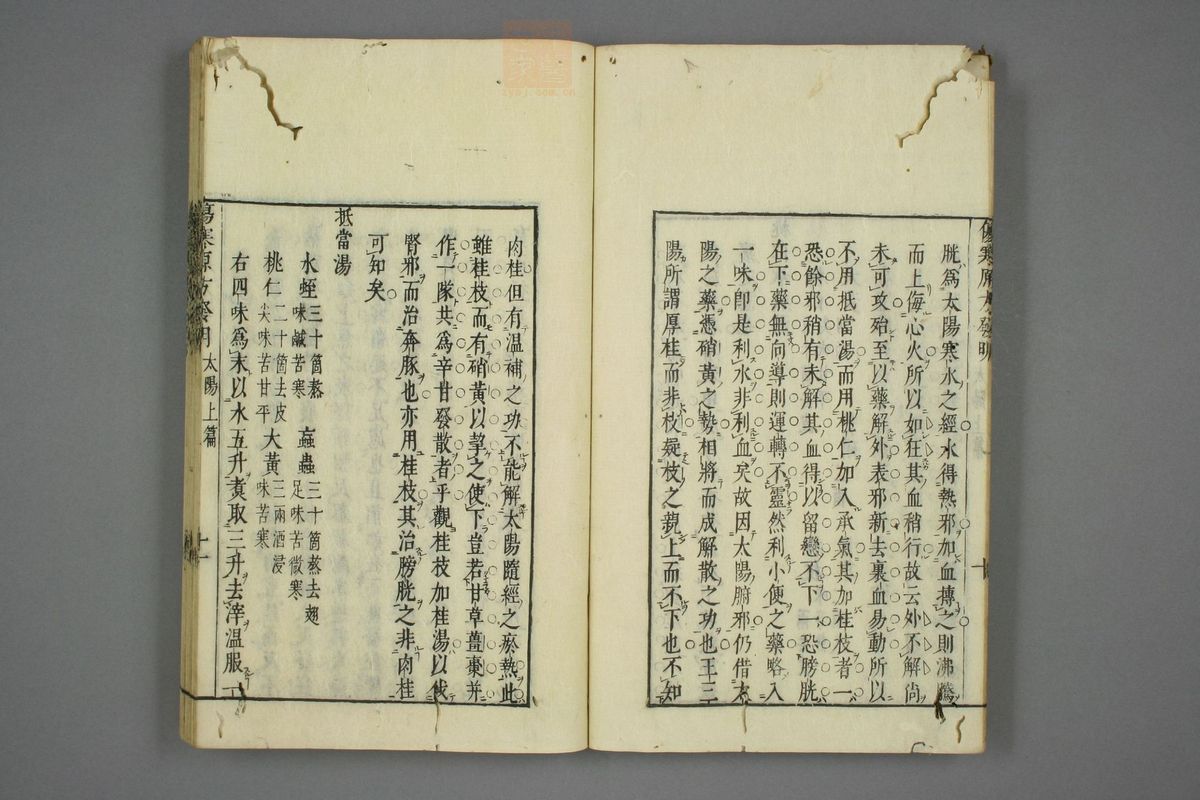 胱爲太陽寒水之經水得熱邪加血摶之則沸騰
而上侮心火所以如在其血稍行故云外不解尚
未可攻殆至以藥解外表邪新去裏血易動所以
不用抵當湯而用桃仁加入承氣其加桂枝者一
恐餘邪稍有未解其血得以留戀不下一恐膀胱
在下藥無向導則運轉不靈然利小便之藥略入
一味卽是利水非利血矣故因太陽腑邪仍借太
陽之藥憑硝黃之勢相將而成解散之功也王三
陽所謂厚桂而非枝疑枝之親上而不下也不知
肉桂但有温補之功不能解太陽隨經之瘀熱此
雖桂枝而有硝黃以挈之使下豈若甘草薑棗并
作一隊共爲辛甘發散者乎觀桂枝加桂湯以伐
腎邪而治奔豚也亦用桂枝其治膀胱之非肉桂
可知矣
抵當湯
水蛭三十箇熬味鹹苦寒 䖟蟲三十箇蒸去翅足味苦微寒
桃仁二十箇去皮尖味苦甘平 大黃三兩酒浸味苦寒
右四味爲末以水五升煑取三升去滓温服一
傷寒原方發明 太陽上篇